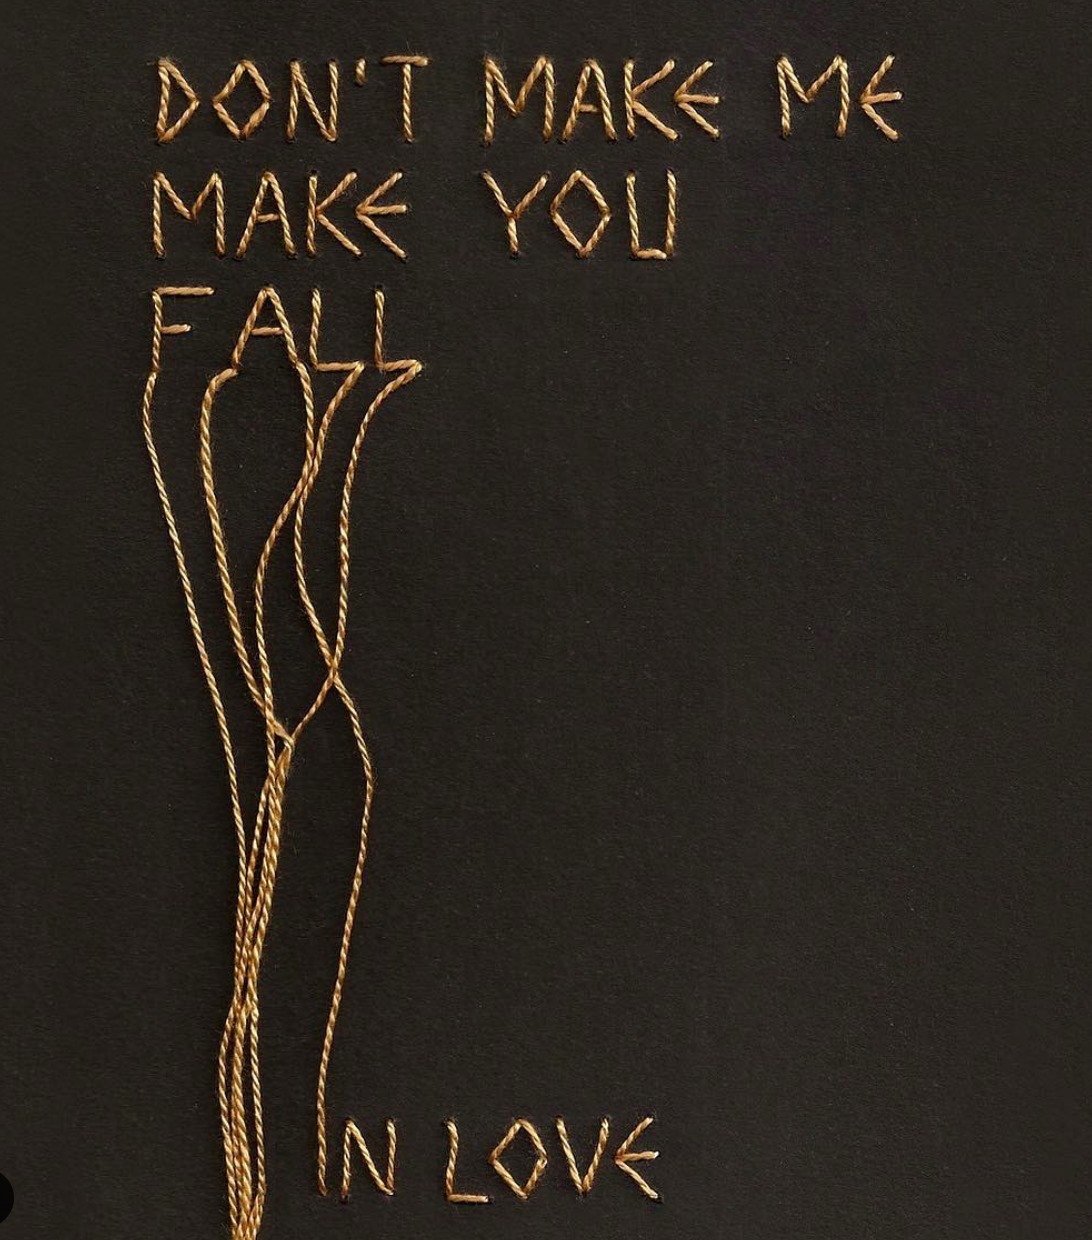 DON'T MAKE ME
MAKE YOU
FALL
IN LOVE